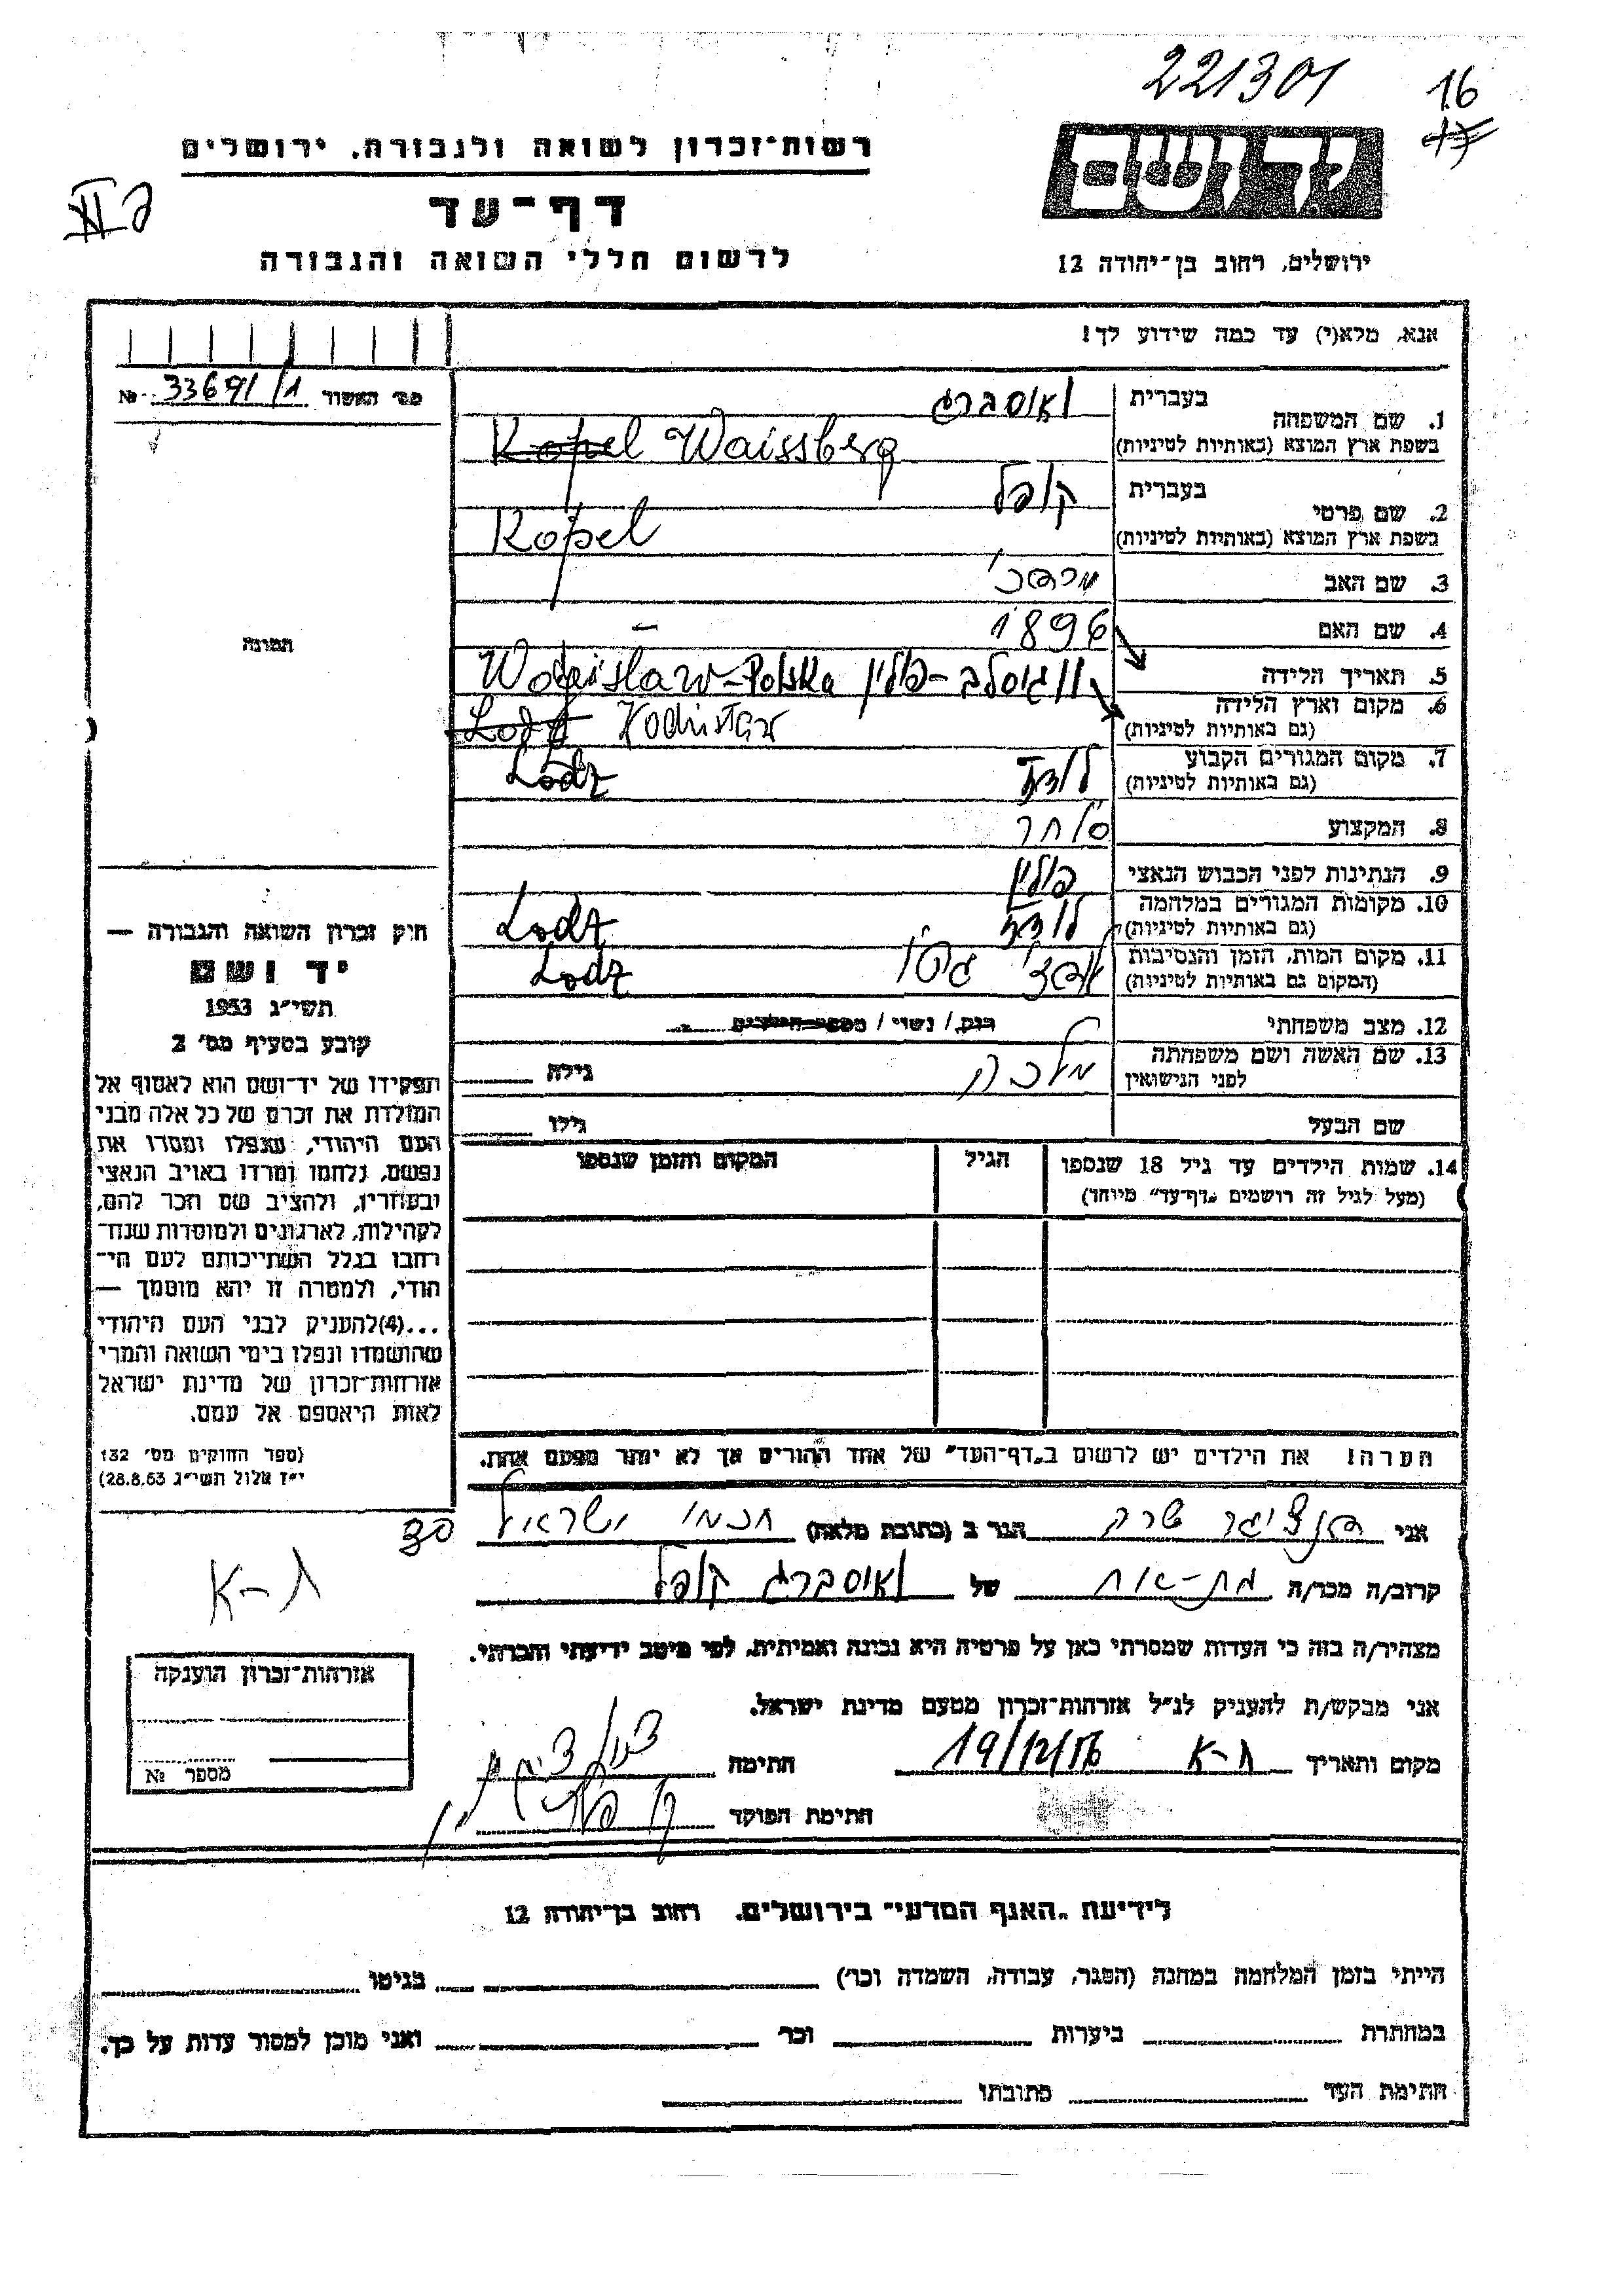 221301
16
17
רשות־זכרון לשואה ולגבורה, ירושלים
יד ושם
דף־עד
לרשום חללי השואה והגבורה
ירושלים, רחוב בן־יהודה 12
אנא, מלא(י) עד כמה שידוע לך!
מס' האשור № 33691/1
1. שם המשפחה
בעברית
וואסברג
בשפת ארץ המוצא (באותיות לטיניות)
Kopel Waissberg
2. שם פרטי
בעברית
קופל
בשפת ארץ המוצא (באותיות לטיניות)
Kopel
3. שם האב
מרדכי
4. שם האם
1896 —
5. תאריך הלידה
וודגיסלב - פולין Wodgislaw - Polska
6. מקום וארץ הלידה
(גם באותיות לטיניות)
Lodz
7. מקום המגורים הקבוע
(גם באותיות לטיניות)
לודז Lodz
8. המקצוע
סוחר
9. הנתינות לפני הכבוש הנאצי
פולין
10. מקומות המגורים במלחמה
(גם באותיות לטיניות)
לודז Lodz
11. מקום המות, הזמן והנסיבות
(המקום גם באותיות לטיניות)
גיטו Lodz
12. מצב משפחתי
רוק/ נשוי / מספר הילדים
13. שם האשה ושם משפחתה
לפני הנישואין
מלכה
גילה
שם הבעל
גילו
14. שמות הילדים עד גיל 18 שנספו
(מעל לגיל זה רושמים „דף־עד" מיוחד)
הגיל
המקום והזמן שנספו
הערה! את הילדים יש לרשום ב„דף־העד" של אחד ההורים אך לא יותר מפעם אחת.
תמונה
חוק זכרון השואה והגבורה —
יד ושם
תשי"ג 1953
קובע בסעיף מס' 2
תפקידו של יד־ושם הוא לאסוף אל
המולדת את זכרם של כל אלה מבני
העם היהודי, שנפלו ומסרו את
נפשם, נלחמו ומרדו באויב הנאצי
ובעוזריו, ולהציב שם וזכר להם,
לקהילות, לארגונים ולמוסדות שנח־
רבו בגלל השתייכותם לעם הי־
הודי, ולמטרה זו יהא מוסמך —
...(4)להעניק לבני העם היהודי
שהושמדו ונפלו בימי השואה והמרי
אזרחות־זכרון של מדינת ישראל
לאות היאספם אל עמם.
(ספר החוקים מס' 132
י"ז אלול תשי"ג 28.8.53)
אני דנציגר שרה הגר ב (כתובת מלאה) חכמי ישראל 30
קרוב/ה מכר/ה בת-אח של וואסברג קופל
מצהיר/ה בזה כי העדות שמסרתי כאן על פרטיה היא נכונה ואמיתית, לפי מיטב ידיעתי והכרתי.
אני מבקש/ת להעניק לנ"ל אזרחות־זכרון מטעם מדינת ישראל.
מקום ותאריך ת-א 19/12/56 חתימה
חתימת הפוקד
ת-א
אזרחות־זכרון הוענקה
מספר №
לידיעת „האגף המדעי" בירושלים. רחוב בן־יהודה 12
הייתי בזמן המלחמה במחנה (הסגר, עבודה, השמדה וכו') בגיטו
במחתרת ביערות וכו' ואני מוכן למסור עדות על כך.
חתימת העד כתובתו